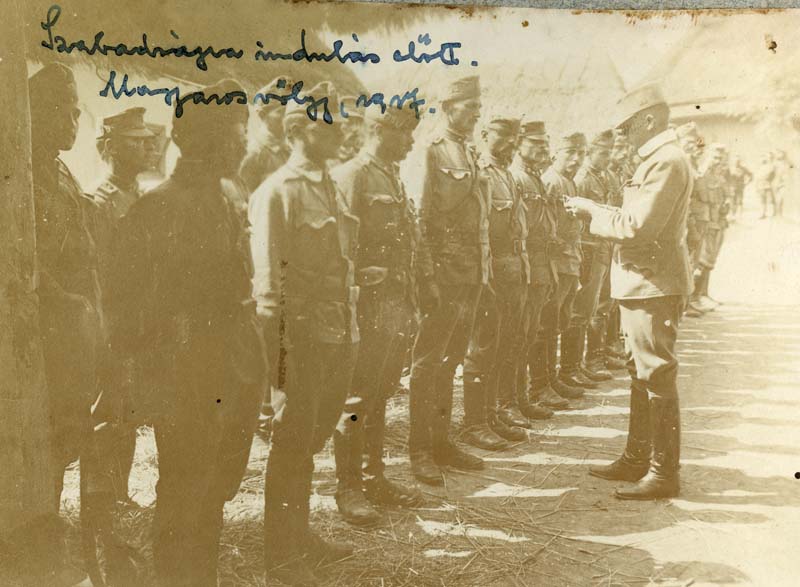 Szabadságra indulás előtt.
Magyarosvölgy, 1917.